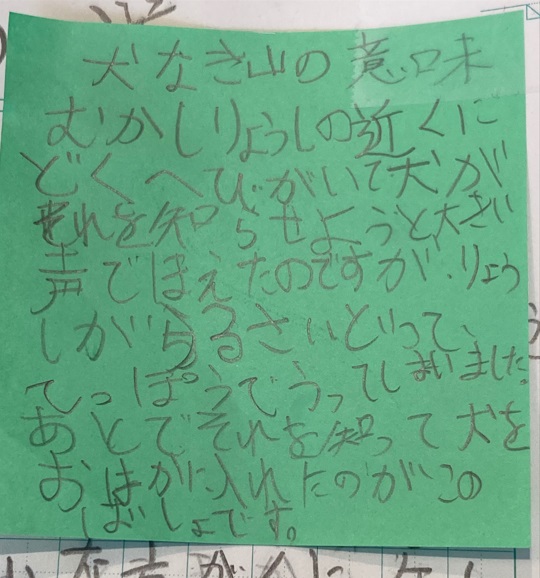 犬なき山の意味
むかしりょうしの近くに
どくへびがいて犬が
それを知らせようと大きい
声でほえたのですが、りょう
しがうるさいどって、
てっぽうでうってしまいました。
あとでそれを知って犬を
おはかに入れたのがこの
ばしょです。